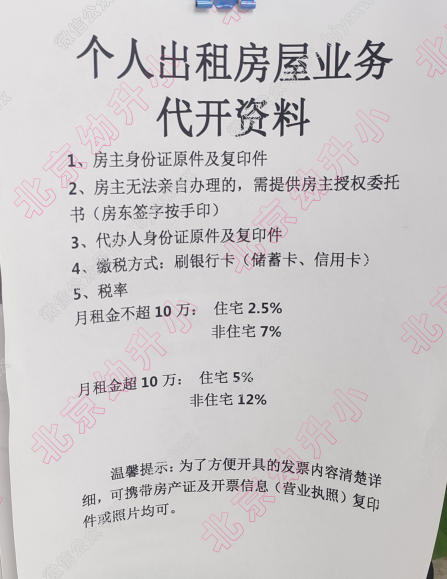 个人出租房屋业务
代开资料
1、房主身份证原件及复印件
2、房主无法亲自办理的，需提供房主授权委托
书（房东签字按手印）
3、代办人身份证原件及复印件
4、缴税方式：刷银行卡（储蓄卡、信用卡）
5、税率
月租金不超 10 万： 住宅 2.5%
非住宅 7%
月租金超 10 万： 住宅 5%
非住宅 12%
温馨提示：为了方便开具的发票内容清楚详
细，可携带房产证及开票信息（营业执照）复印
件或照片均可。
北京幼升小
北京幼升小
北京幼升小
北京幼升小